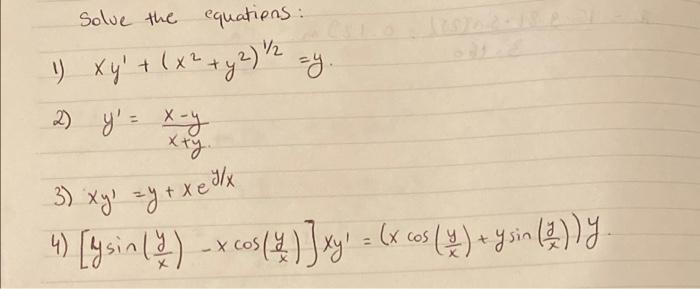 Solve the equations:
1) xy' + (x² + y²)^1/2 = y.
2) y' = x-y / x+y.
3) xy' = y + xe^y/x
4) [y sin(y/x) - x cos(y/x)] xy' = (x cos(y/x) + y sin(y/x)) y.